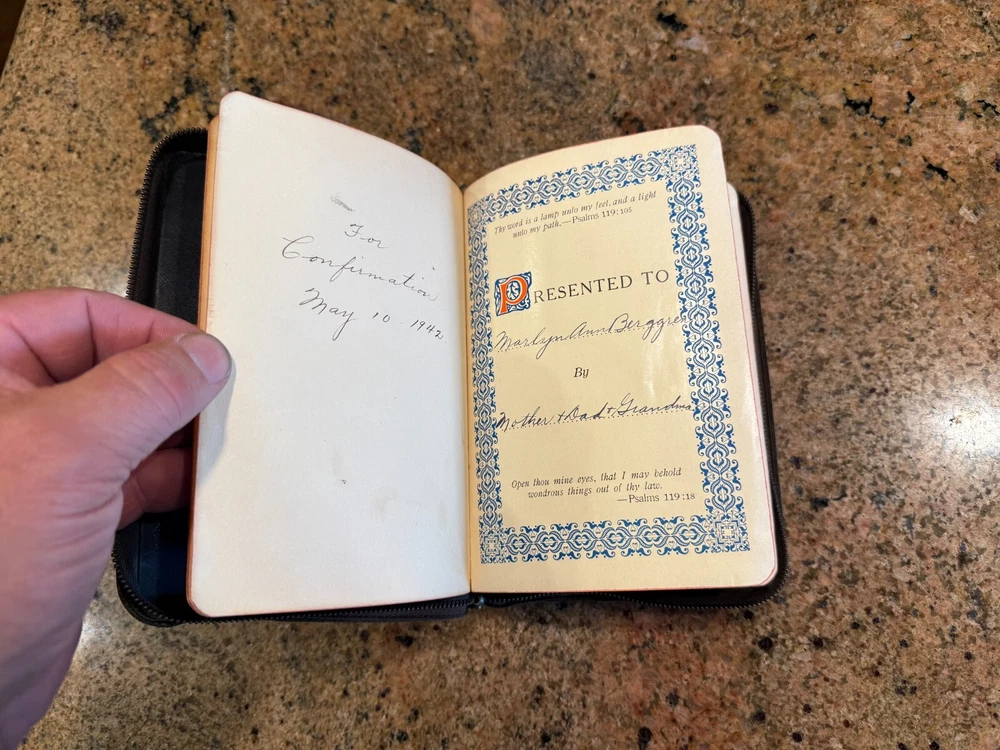 For
Confirmation
May 10 1942
Thy word is a lamp unto my feet, and a light
unto my path.—Psalms 119:105
PRESENTED TO
Marlyn Ann Berggren
By
Mother + Dad + Grandma
Open thou mine eyes, that I may behold
wondrous things out of thy law.
—Psalms 119:18